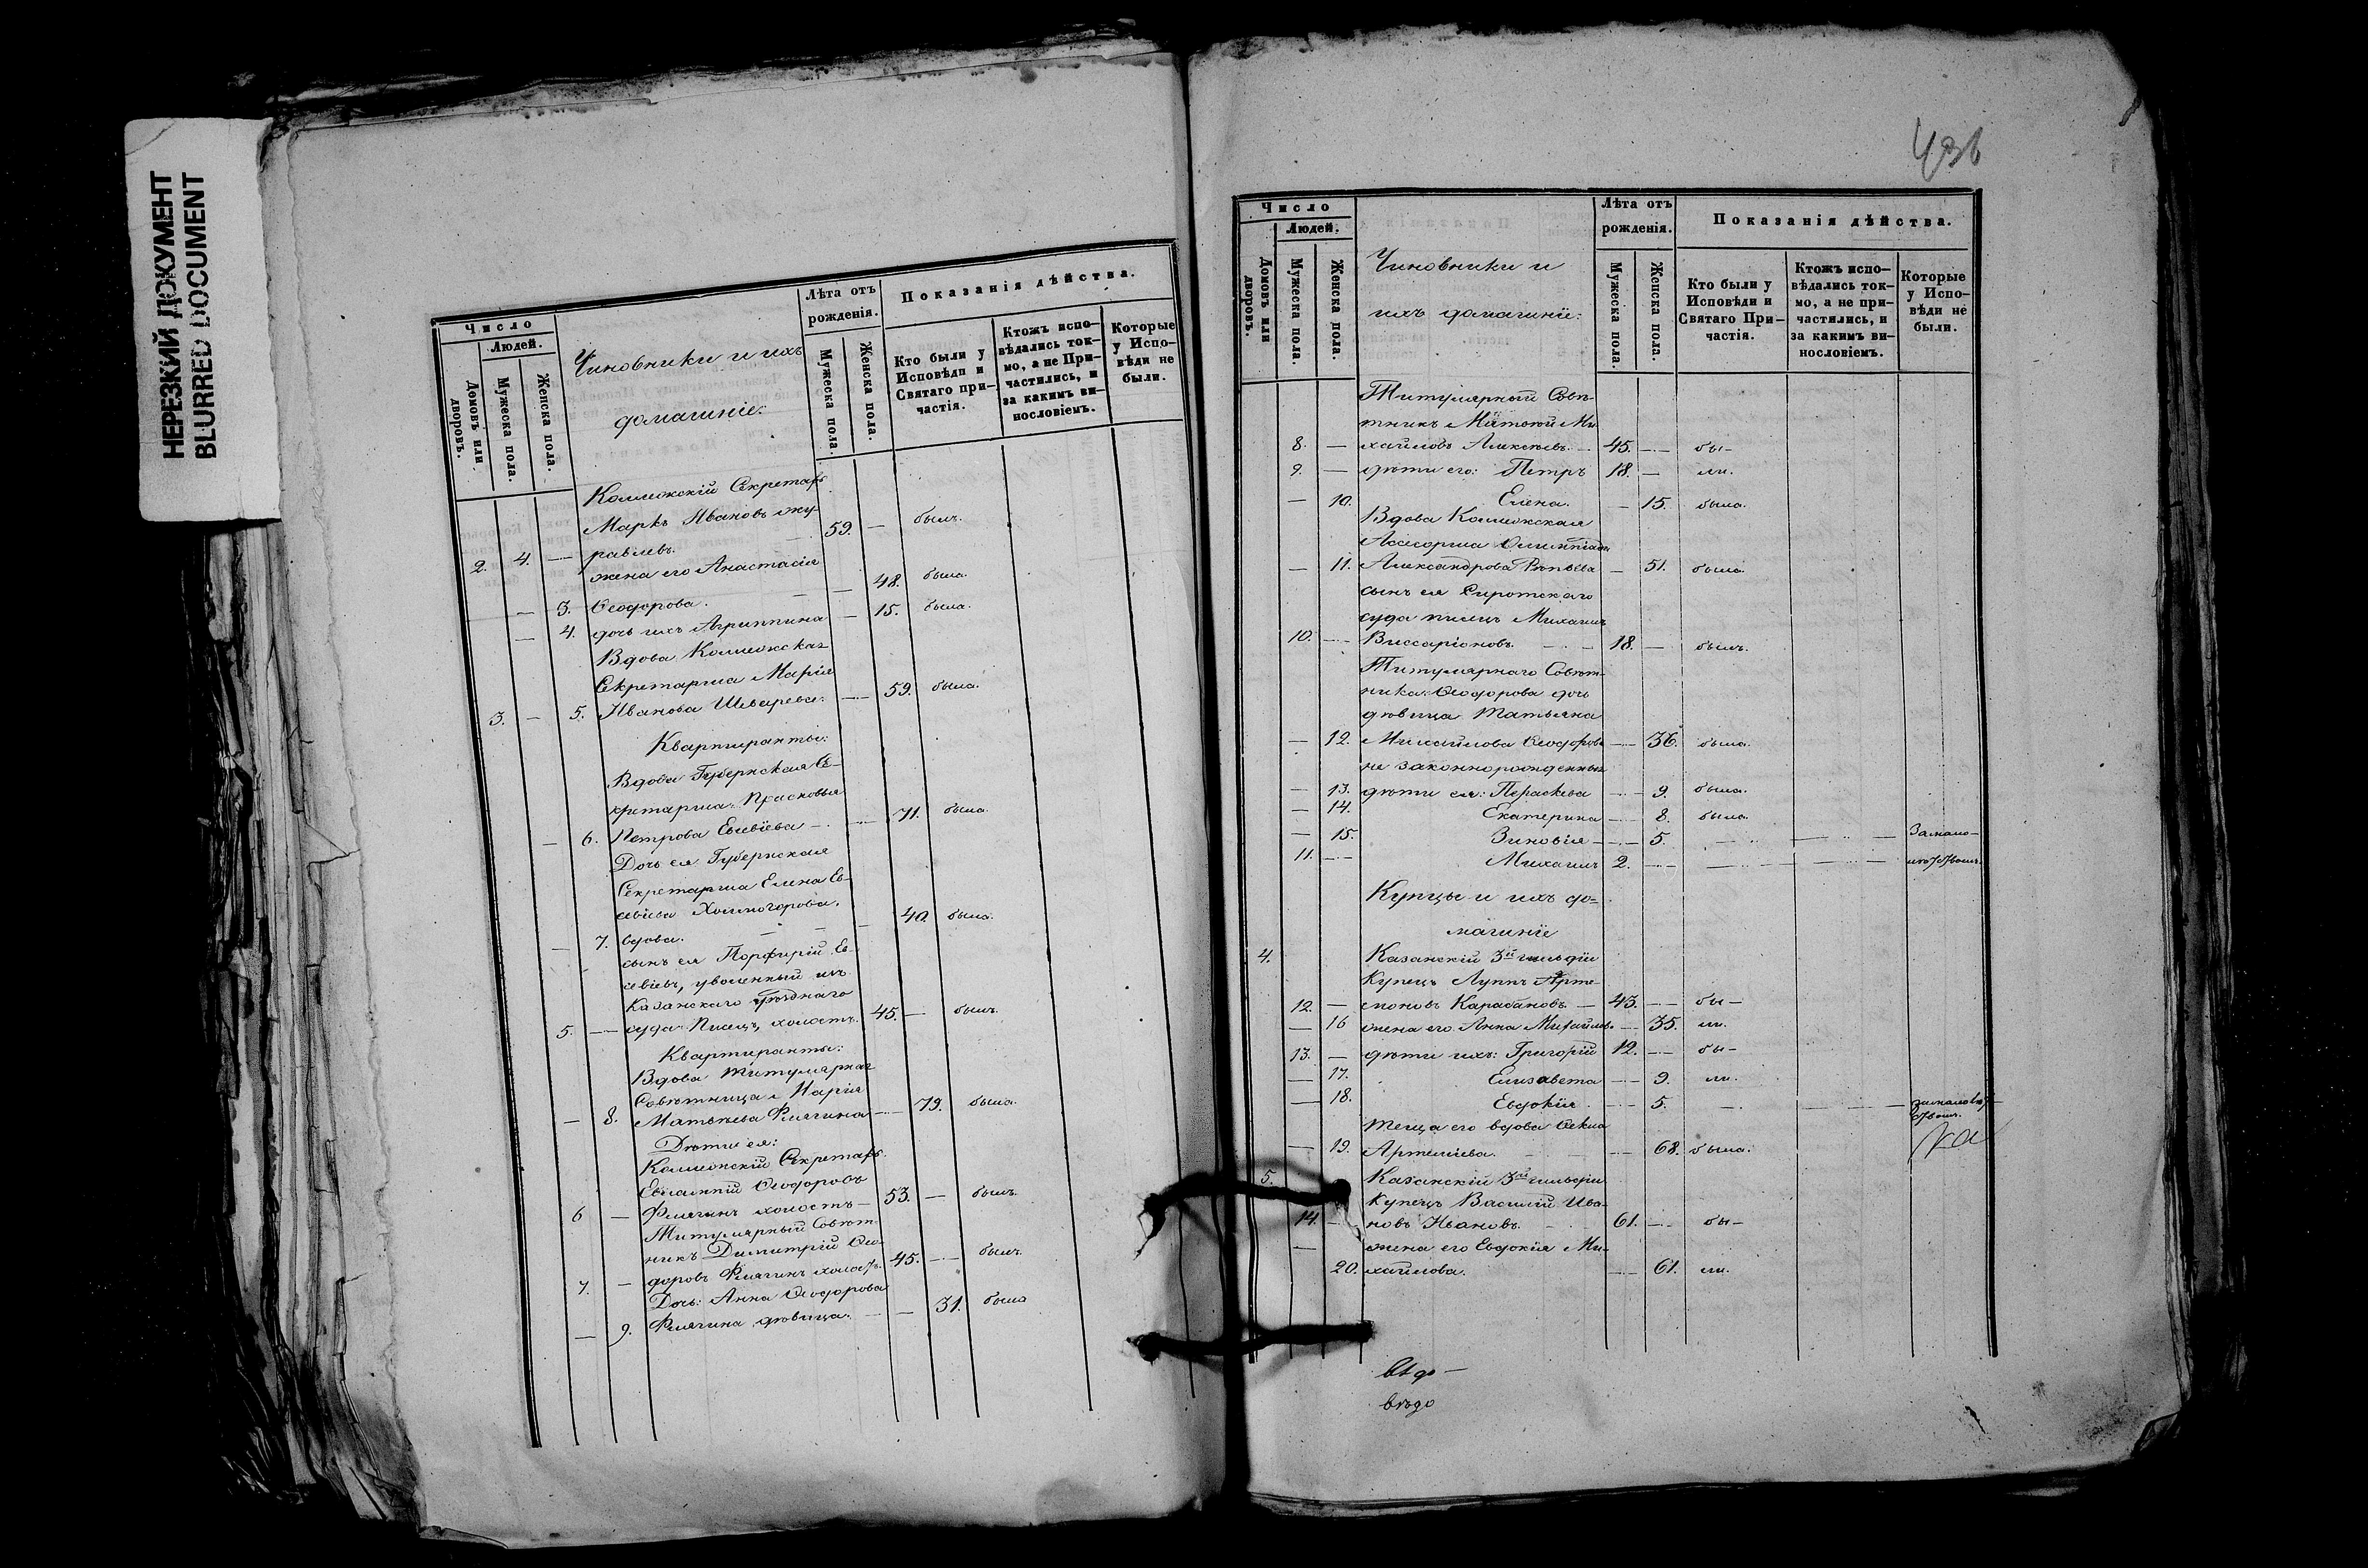 НЕРЕЗКИЙ ДОКУМЕНТ
BLURRED DOCUMENT
Число
Людей.
Домовъ или дворовъ.
Мужеска пола.
Женска пола.
Чиновники и ихъ
домашніе:
Лѣта отъ рожденія.
Мужеска пола.
Женска пола.
Показанія дѣйства.
Кто были у Исповѣди и Святаго при-частія.
Ктожъ испо-вѣдались ток-мо, а не При-частились, и за какимъ ви-нословіемъ.
Которые у Испо-вѣди не были.
Коллежскій Секретарь
Маркъ Ивановъ Жу-
2. 4. — равлевъ. 59. — былъ.
жена его Анастасія
— 3. Ѳеодорова. — 48. была.
— 4. дочь ихъ Агриппина — 15. была.
Вдова Коллежская
Секретарша Марія
3. — 5. Иванова — 59. была.
Квартиранты:
Вдова Губернская Се-
кретарша Прасковья
— 6. Петрова — 71. была.
Дочь ея Губернская
Секретарша Елена Ев-
Холмогорова,
— 7. вдова. — 40. была.
сынъ ея Порфирій Ев-
уволенный изъ
Казанскаго уѣзднаго
5. — суда Писецъ, холостъ. 45. — былъ.
Квартиранты:
Вдова Титулярная
Совѣтница Марія
— 8. Матвѣева — 79. была.
Дѣти ея:
Коллежскій Секретарь
Евлампій Ѳеодоровъ
6 — холостъ — 53. — былъ.
Титулярный Совѣт-
никъ Димитрій Ѳео-
7. — доровъ холостъ. 45. — былъ.
Дочь: Анна Ѳеодорова
— 9. дѣвица. — 31. была
Число
Людей.
Домовъ или дворовъ.
Мужеска пола.
Женска пола.
Чиновники и
ихъ домашніе:
Лѣта отъ рожденія.
Мужеска пола.
Женска пола.
Показанія дѣйства.
Кто были у Исповѣди и Святаго При-частія.
Ктожъ испо-вѣдались ток-мо, а не при-частились, и за какимъ ви-нословіемъ.
Которые у Испо-вѣди не были.
Титулярный Совѣ-
тникъ Ми-
8. — хайловъ Алексѣевъ. 45. — бы-
9. — дѣти его: Петръ 18. — ли.
— 10. Елена. — 15. была.
Вдова Коллежская
Ассесорша Олимпіада
— 11. Александрова — 51. была.
сынъ ея Сиротскаго
суда писецъ Михаилъ
10. — Виссаріоновъ. 18. — былъ.
Титулярнаго Совѣт-
ника Ѳеодорова дочь
дѣвица Татьяна
— 12. Михайлова Ѳеодорова — 36. была.
не законнорожденные
— 13. дѣти ея: Параскева — 9. была.
— 14. Екатерина — 8. была.
— 15. Зиновія — 5. — — За мало-
11. — Михаилъ 2. — — —
Купцы и ихъ до-
машніе
4. Казанскій 3й гильдіи
Купецъ Луппъ Арте-
12. — моновъ Карабановъ — 43. — бы-
— 16 жена его Анна Михайлова — 35. ли.
13. — дѣти ихъ: Григорій 12. — бы-
— 17. Елизавета — 9. ли.
— 18. Евдокія — 5. — —
теща его вдова Ѳекла
— 19. Артемьева. — 68. была.
5. Казанскій 3й гильдіи
Купецъ Василій Ива-
14. — новъ Ивановъ. 61. — бы-
— жена его Евдокія Ми-
20. хайлова. — 61. ли.